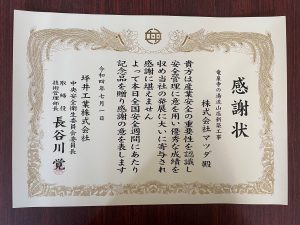 感謝状
竜泉寺の湯流山店新築工事
株式会社マツダ殿
貴方は産業安全の重要性を認識し
安全管理に意を用い優秀な成績を
収め当社の発展に大いに寄与され
感謝に堪えません
よって本日全国安全週間にあたり
記念品を贈り感謝の意を表します
令和四年七月一日
坪井工業株式会社
中央安全衛生委員会委員長
取締役
技術管理部長
長谷川覚